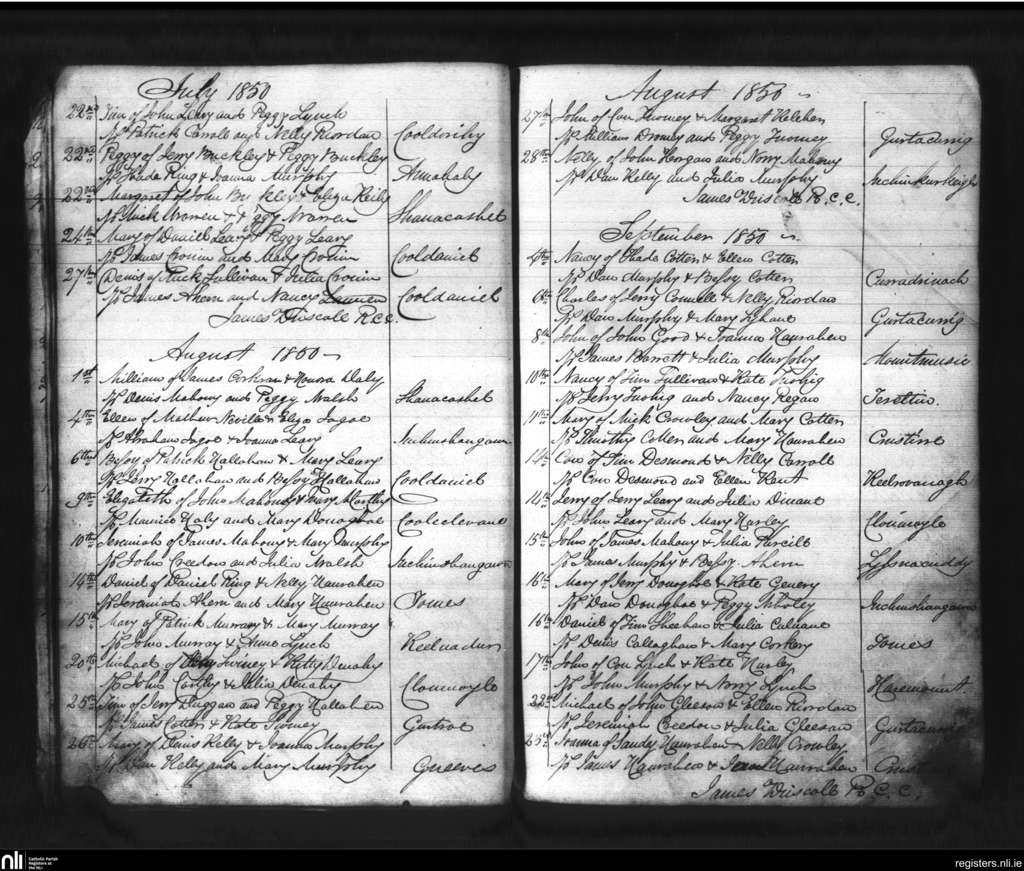 July 1850
22nd Tim of John Leary and Peggy Lynch
Sps Patrick Carroll and Nelly Riordan
22nd Peggy of Jerry Buckley & Peggy Buckley
Sps Thade Ring & Joanna Murphy
22nd Margaret of John Buckley & Eliza Reily
Sps Mick Warren & Peggy Warren Shanacashel
24th Mary of Daniel Leary & Peggy Leary
Sps James Cronin and Mary Cronin Cooldaniel
27th Denis of Mick Sullivan & Julia Cronin
Sps James Ahern and Nancy Cooldaniel
James Driscoll R.C.C.
August 1850
1st William of James Corkeran & Honora Daly
Sps Denis Mahony and Peggy Walsh Shanacashel
4th Ellen of Mathew Neville & Eliza Jagoe
Sps Abraham Jagoe & Joanna Leary Inchinshangaun
6th Bessy of Patrick Hallahan & Mary Leary
Sps Jerry Hallahan and Bessy Hallahan Cooldaniel
9th Elizabeth of John Mahony & Mary
Sps Maurice Haly and Mary Donoghoe
10th Jeremiah of James Mahony & Mary Murphy
Sps John Creedon and Julia Walsh Inchinshangaun
14th Daniel of Daniel Ring & Nelly Hanrahen
Sps Jeremiah Ahern and Mary Hanrahen Tomes
15th Mary of Patrick Murray & Mary Murray
Sps John Murray & Anne Lynch
20th Michael of Twiney & Kitty Denahy
Sps John & Julia Denahy Clonmoyle
25th Tim of Jerry Duggan and Peggy Hallahen
Sps James Cotter & Kate Twomey
26th Mary of Denis Kelly & Joanna Murphy
Sps Dan Kelly and Mary Murphy Greeves
August 1850
27th John of Con Twomey & Margaret Kelehen
Sps William Dromey and Peggy Twomey Gurtacurrig
28th Nelly of John Horgan and Norry Mahony
Sps Dan Kelly and Julia Murphy
James Driscoll R.C.C.
September 1850
4th Nancy of Thade Cotter & Ellen Cotter
Sps Dan Murphy & Bessy Cotter Curradrinach
6th Charles of Jerry Connell & Nelly Riordan
Sps Dan Murphy & Mary Lyhane Gurtacurrig
8th John of John Good & Joanna Hanrahen
Sps James Barrett & Julia Murphy Mountmusic
10th Nancy of Tim Sullivan & Kate Twohig
Sps Jerry Twohig and Nancy Regan
11th Mary of Mick Crowley and Mary Cotter
Sps Timothy Cotter and Mary Hanrahen
14th Con of Tim Desmond & Nelly Carroll
Sps Con Desmond and Ellen
14th Jerry of Jerry Leary and Julia Dinane
Sps John Leary and Mary Harley Clonmoyle
15th John of James Mahony & Julia Purcell
Sps James Murphy & Bessy Ahern Lissnacuddy
16th Mary of Jerry Donoghoe & Kate Genery
Sps Dan Donoghoe & Peggy Inchinshangaun
16th Daniel of Tim Sheehan & Julia Culhane
Sps Denis Callaghan & Mary Corkery Tomes
17th John of Con Lynch & Kate Hurley
Sps John Murphy & Norry Lynch Haremount
22nd Michael of John Gleeson & Ellen Riordan
Sps Jeremiah Creedon & Julia Gleeson Gurtacurrig
25th Joanna of Sandy Hanrahen & Nelly Crowley
Sps James Hanrahen & Hanrahen
James Driscoll R.C.C.
nli
Catholic Parish
Registers at
the NLI
registers.nli.ie